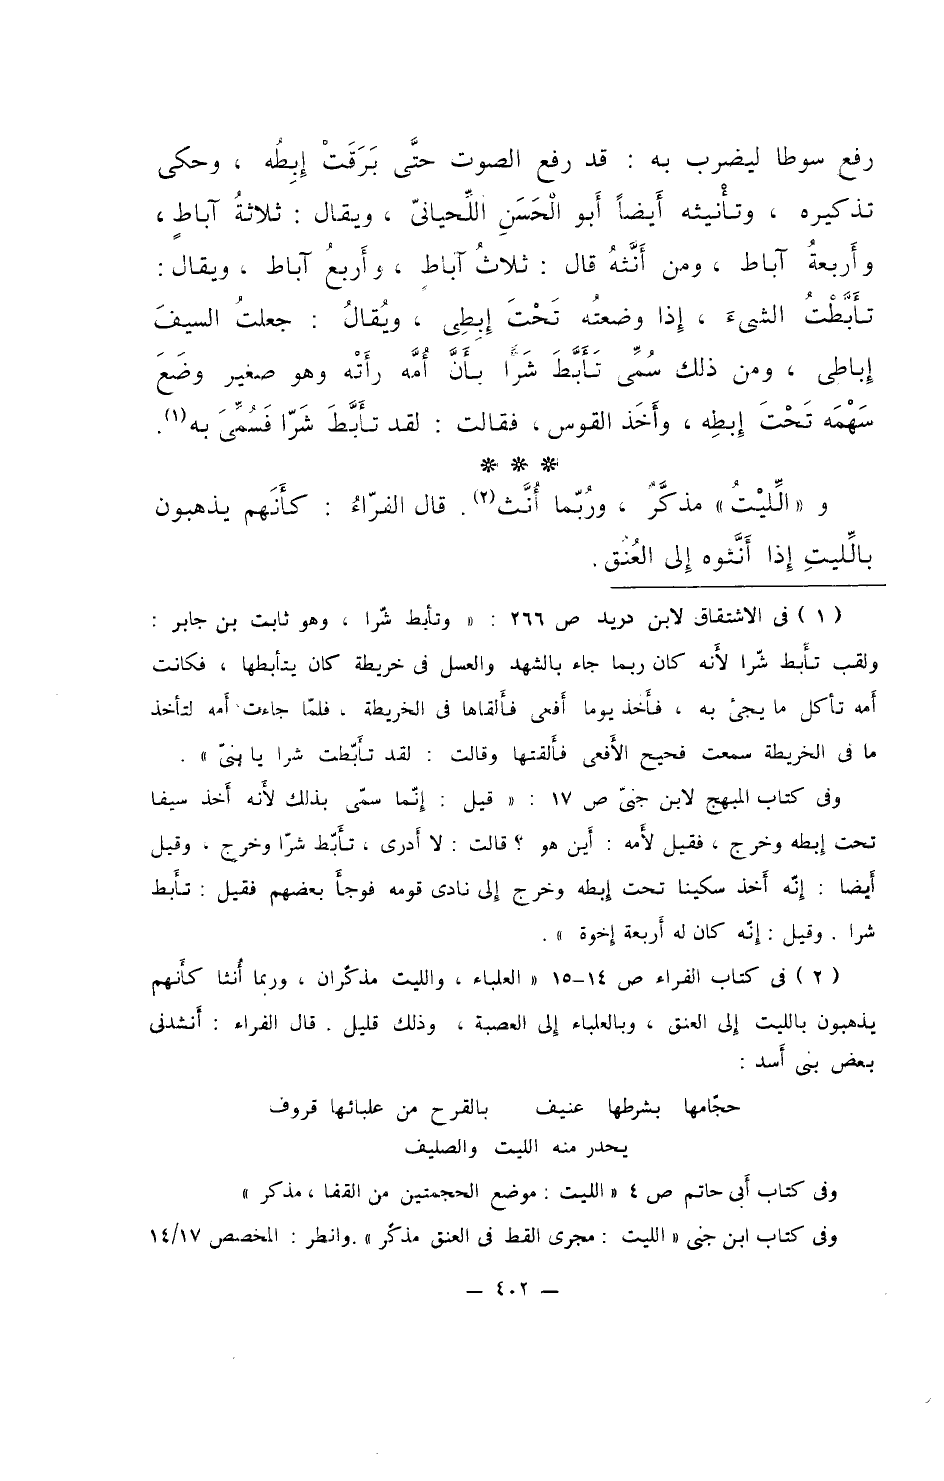 رفع سوطا ليضرب به : قد رفع الصوت حتَّى بَرَقَتْ إِبطُه ، وحكى
تذكيره ، وتأْنيثه أَيضاً أَبو الْحَسَنِ اللِّحيانىّ ، ويقال : ثلاثةُ آباطٍ ،
وأَربعةُ آباط ، ومن أَنَّثهُ قال : ثلاثُ آباط ، وأَربعُ آباط ، ويقال :
تأَبَّطْتُ الشىءَ ، إِذا وضعتُه تَحْتَ إِبطِى ، ويُقالُ : جعلتُ السيفَ
إِباطى ، ومن ذلك سُمِّى تَأَبَّطَ شَرًّا بأَنَّ أُمَّه رأَتْه وهو صغير وضَعَ
سَهْمَه تَحْتَ إِبطِه ، وأَخَذ القوس ، فقالت : لقد تأَبَّطَ شَرّا فَسُمِّىَ به(١).
* * *
و « اللِّيْتُ » مذكَّرٌ ، ورُبّما أُنَّث(٢). قال الفرّاءُ : كأَنَهم يذهبون
باللِّيتِ إِذا أَنَّثوه إِلى العُنُق .
( ١ ) فى الاشتقاق لابن دريد ص ٢٦٦ : « وتأبط شّرا ، وهو ثابت بن جابر :
ولقب تأبط شّرا لأَنه كان ربما جاء بالشهد والعسل فى خريطة كان يتأبطها ، فكانت
أمه تأكل ما يجئ به ، فأخذ يوما أفعى فألقاها فى الخريطة ، فلمّا جاءت أمه لتأخذ
ما فى الخريطة سمعت فحيح الأَفعى فأَلقتها وقالت : لقد تأَبّطت شرا يا بنىّ » .
وفى كتاب المبهج لابن جنىّ ص ١٧ : « قيل : إنّما سمّى بذلك لأَنه أخذ سيفا
تحت إبطه وخرج ، فقيل لأمه : أين هو ؟ قالت : لا أدرى ، تأَبّط شرّا وخرج ، وقيل
أيضا : إنّه أخذ سكينا تحت إبطه وخرج إلى نادى قومه فوجأ بعضهم فقيل : تأبط
شرا . وقيل : إنّه كان له أربعة إخوة » .
( ٢ ) فى كتاب الفراء ص ١٤–١٥ « العلباء ، والليت مذكّران ، وربما أُنثا كأَنهم
يذهبون بالليت إلى العنق ، وبالعلباء إلى العصبة ، وذلك قليل . قال الفراء : أَنشدنى
بعض بنى أَسد :
حجّامها بشرطها عنيف بالقرح من علبائها قروف
يحدر منه الليت والصليف
وفى كتاب أَبى حاتم ص ٤ « الليت : موضع الحجمتين من القفا ، مذكر »
وفى كتاب ابن جنى « الليت : مجرى القط فى العنق مذكّر » .وانطر : المخصص ١٤/١٧
— ٤٠٢ —